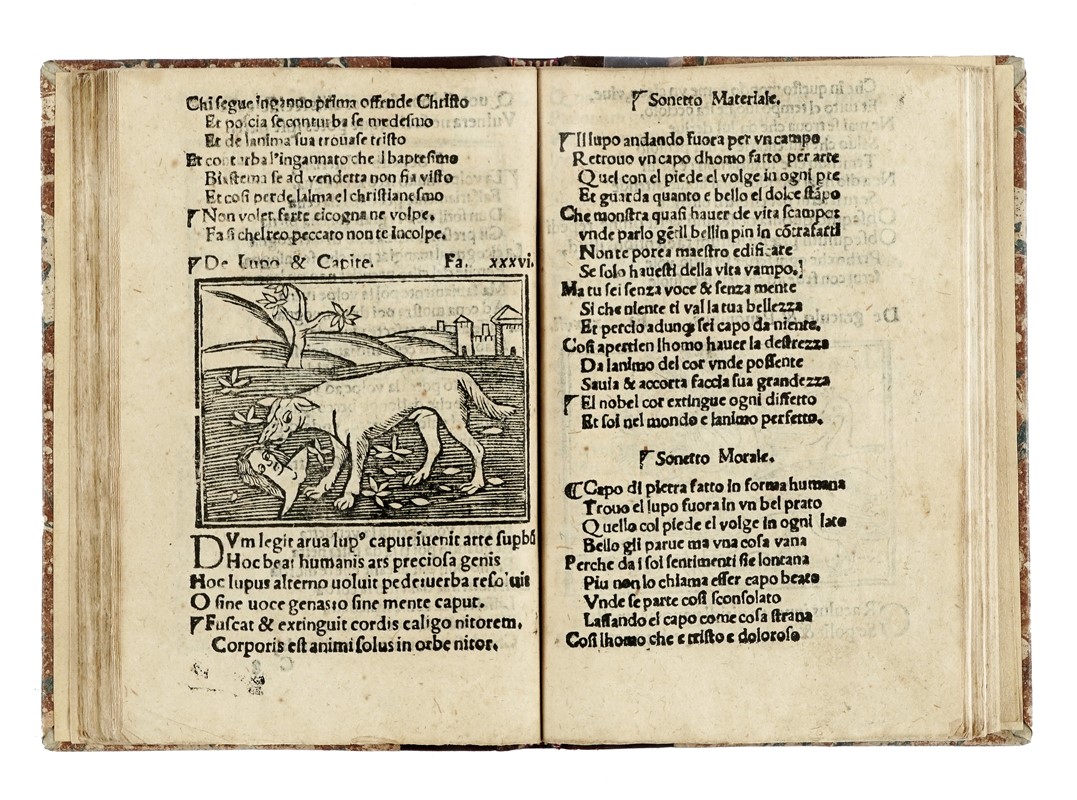 Chi segue inganno prima offende Christo
Et poscia se conturba se medesmo
Et de lanima sua trouase tristo
Et conturba l'ingannato che il baptesimo
Biastema se ad vendetta non fia visto
Et cosi perde lalma el christianesmo
Non voler farte cicogna ne volpe.
Fa si chel reo peccato non te incolpe.
De Lupo & Capite. Fa. xxxvi.
DVm legit arua lupꝰ caput īuenit arte suꝑbū
Hoc beat humanis ars preciosa genis
Hoc lupus alterno uoluit pede:uerba resoluit
O sine uoce genas:o sine mente caput.
Fuscat & extinguit cordis caligo nitorem.
Corporis est animi solus in orbe nitor.
Sonetto Materiale.
Il lupo andando fuora per vn campo
Retrouo vn capo dhomo fatto per arte
Quel con el piede el volge in ogni pte
Et guarda quanto e bello el dolce stāpo
Che monstra quasi hauer de vita scampo:
vnde parlo gētil bellin pin in cōtrafarti
Non te porea maestro edificare
Se solo hauesti della vita vampo.
Ma tu sei senza voce & senza mente
Si che niente ti val la tua bellezza
Et percio adunq; sei capo da niente.
Cosi apertien lhomo hauer la destrezza
Da lanimo del cor vnde possente
Sauia & accorta faccia sua grandezza
El nobel cor extingue ogni diffetto
Et sol nel mondo e lanimo perfetto.
Sonetto Morale.
Capo di pietra fatto in forma humana
Trouo el lupo fuora in vn bel prato
Quello col piede el volge in ogni lato
Bello gli parue ma vna cosa vana
Perche da i soi sentimenti sie lontana
Piu non lo chiama esser capo beato
Vnde se parte cosi sconsolato
Lassando el capo come cosa strana
Cosi lhomo che e tristo e doloroso